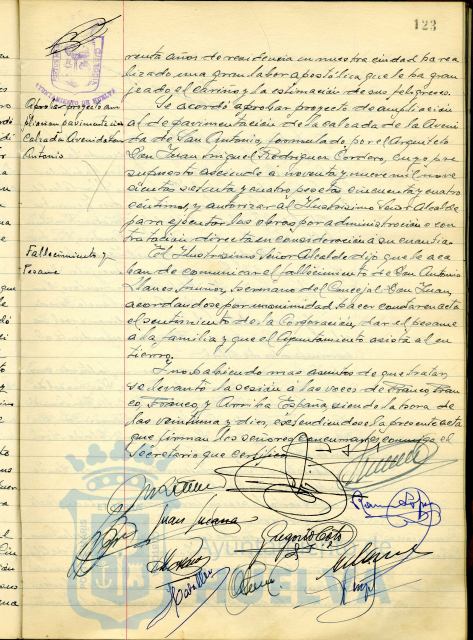 123
AYUNTAMIENTO DE HUELVA
renta años de residencia en nuestra ciudad ha rea-
lizado una gran labor apostólica que le ha gran-
jeado el cariño y la estimación de sus feligreses.
Aprobar proyecto am-
pliacion pavimentación
calzada Avenida San
Antonio
Se acordó aprobar proyecto de ampliación
al de pavimentación de la calzada de la Aveni-
da de San Antonio, formulado por el Arquitecto
Don Juan Miguel Rodriguez Cordero, cuyo pre-
supuesto asciende a noventa y nueve mil nove-
cientas setenta y cuatro pesetas cincuenta y cuatro
centimos, y autorizar al Ilustrisimo Señor Alcalde
para ejecutar las obras por administración o con-
tratación directa en consideración a su cuantia.
Fallecimiento y
Pesame
El Ilustrisimo Señor Alcalde dijo que le aca-
ban de comunicar el fallecimiento de Don Antonio
Llanes hermano del Concejal Don Juan,
acordandose por unanimidad hacer constar en acta
el sentimiento de la Corporación, dar el pesame
a la familia y que el Ayuntamiento asista al en-
tierro.
Y no habiendo mas asuntos de que tratar,
se levantó la sesión a las voces de Franco Fran-
co Franco y Arriba España, siendo la hora de
las veintiuna y diez, extendiendose la presente acta
que firman los señores concurrentes conmigo el
Secretario que certifico.
Juan
Gregorio
Ayuntamiento de
HUELVA